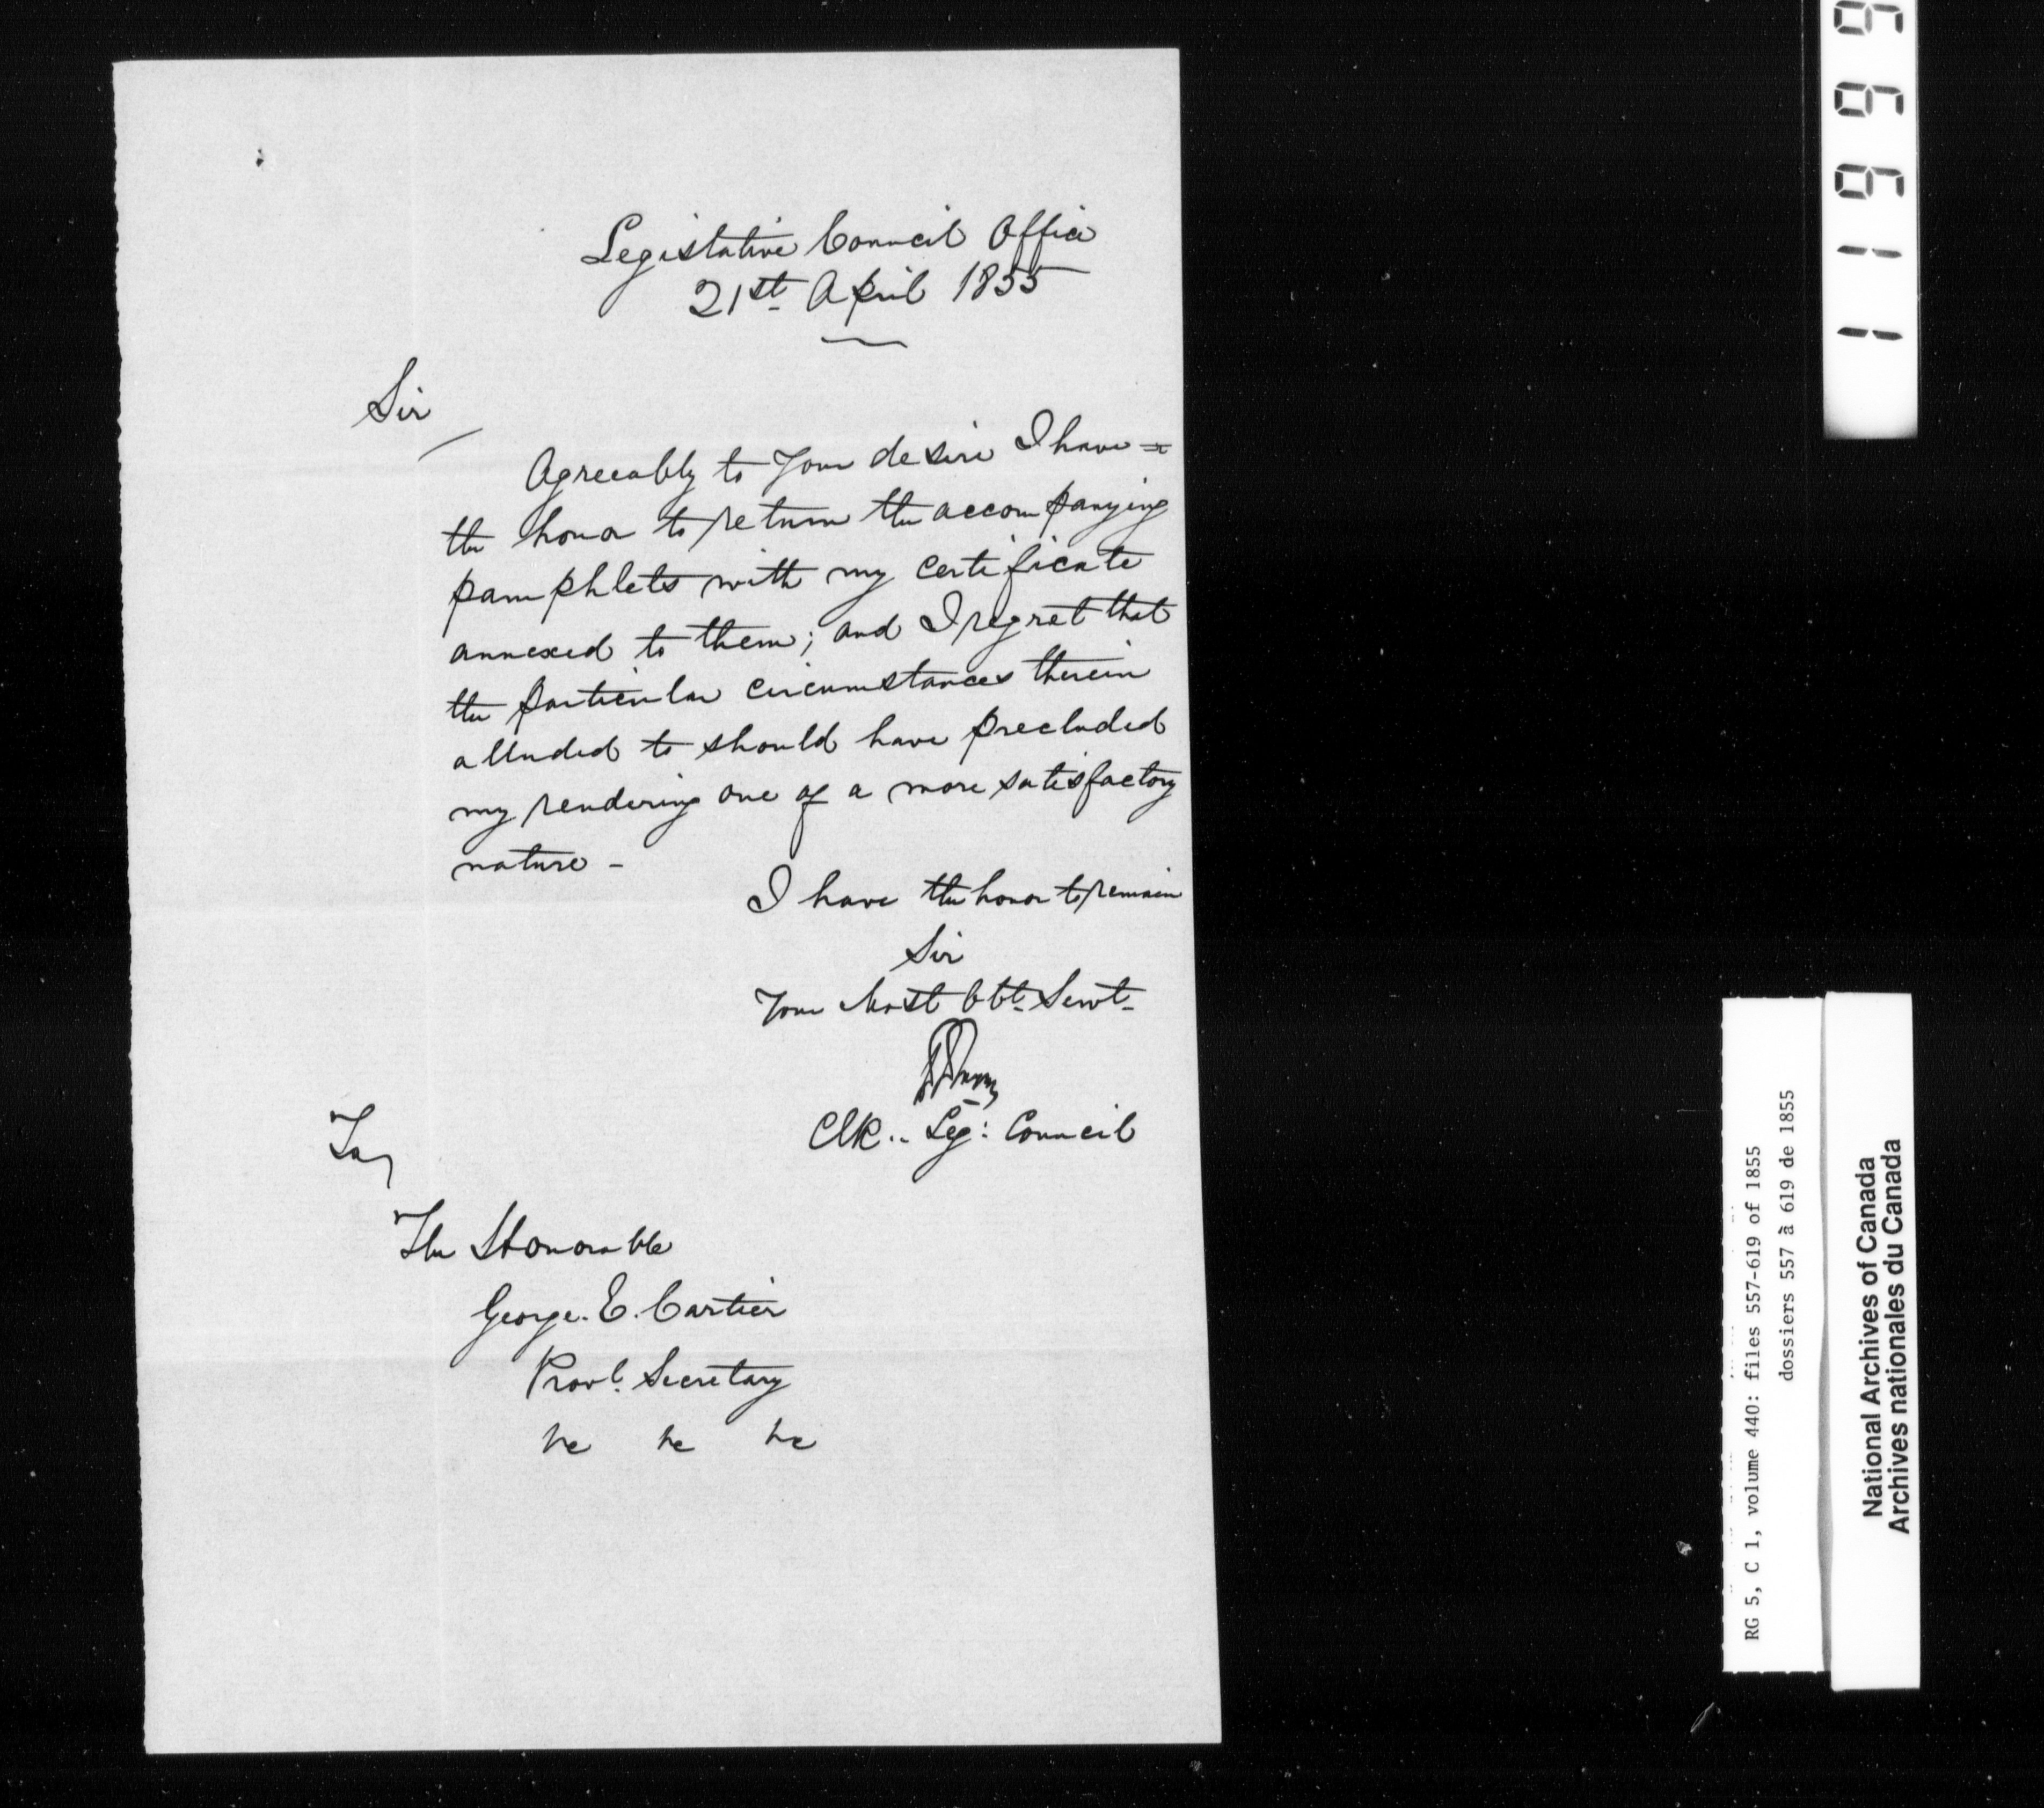 Legislative Council Office
21st April 1855
Sir
Agreeably to Your desire I have =
the honor to return the accompanying
pamphlets with my certificate
annexed to them; and I regret that
the particular circumstances therein
alluded to should have precluded
my rendering one of a more satisfactory
nature -
I have the honor to remain
Sir
Your Most Obt. Servt.
Clk.. Leg: Council
To,
The Honorable
George. E. Cartier
Provl. Secretary
&c &c &c
RG 5, C 1, volume 440: files 557-619 of 1855
dossiers 557 à 619 de 1855
National Archives of Canada
Archives nationales du Canada